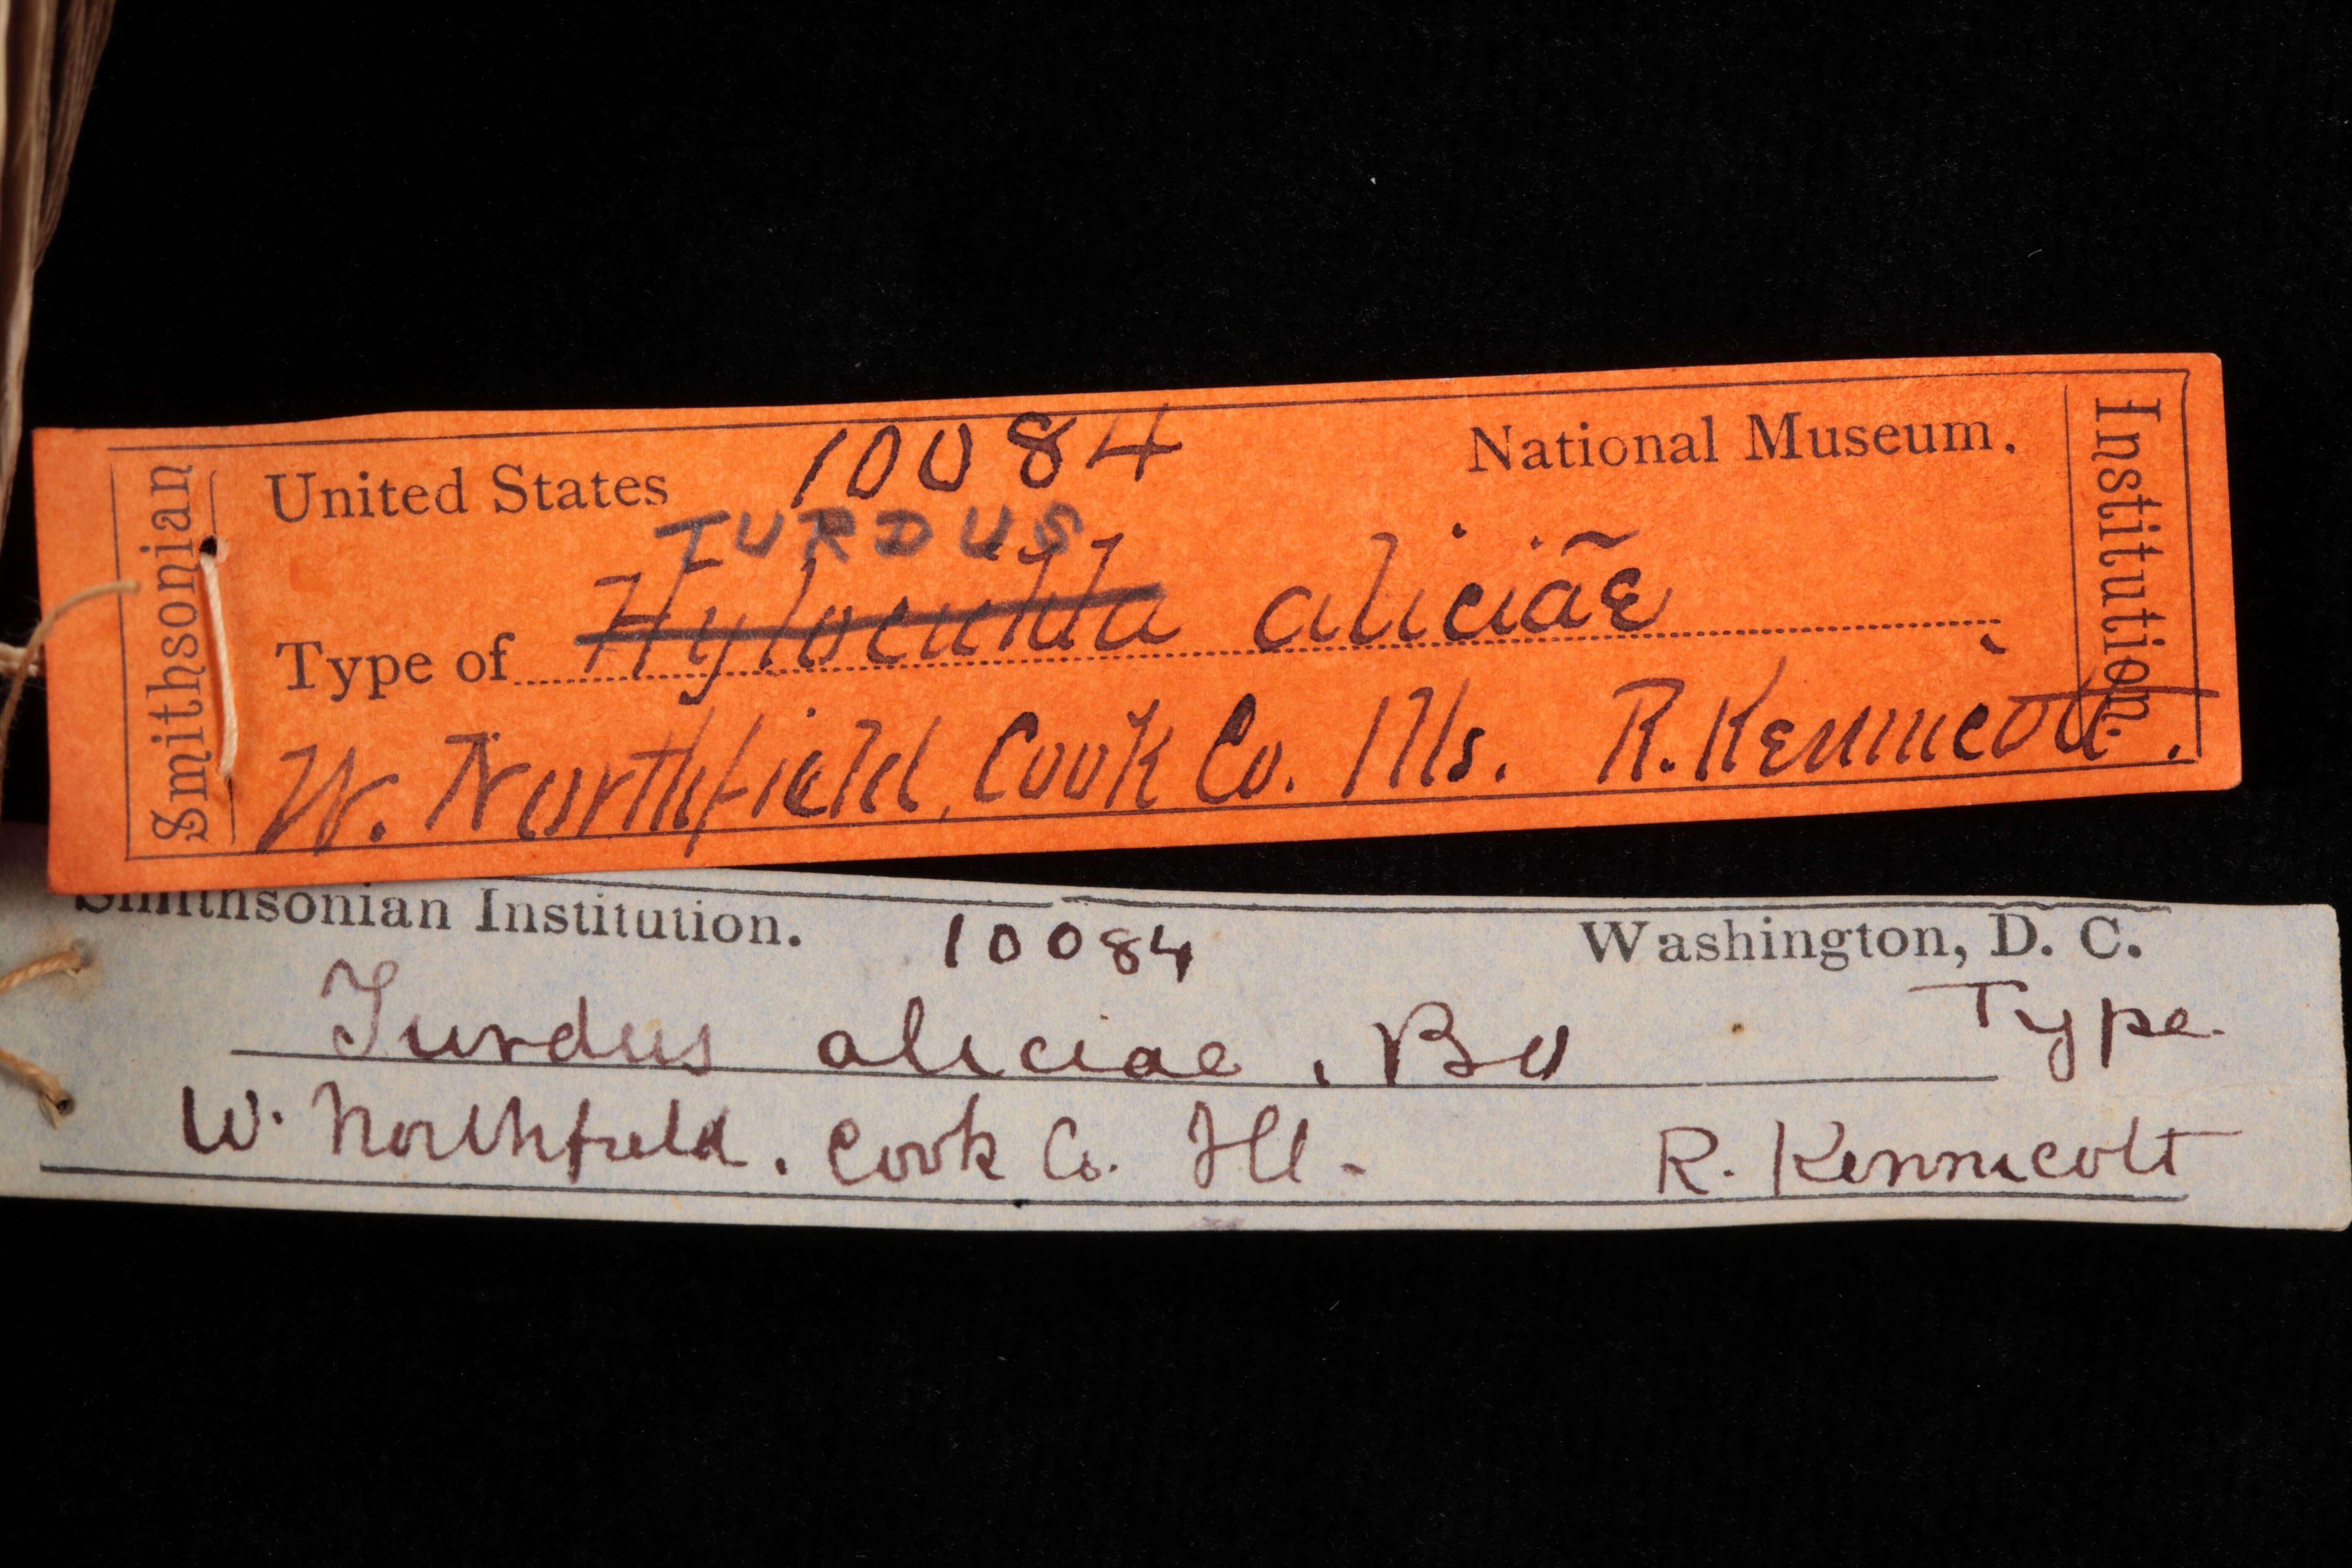 Smithsonian
United States 10084 National Museum.
TURDUS
Type of Hylocichla aliciae
W. Northfield, Cook Co. Ills. R. Kennicott.
Institution.
Smithsonian Institution. 10084 Washington, D. C.
Turdus aliciae, Bd Type.
W. Northfield. Cook Co. Ill. R. Kennicott